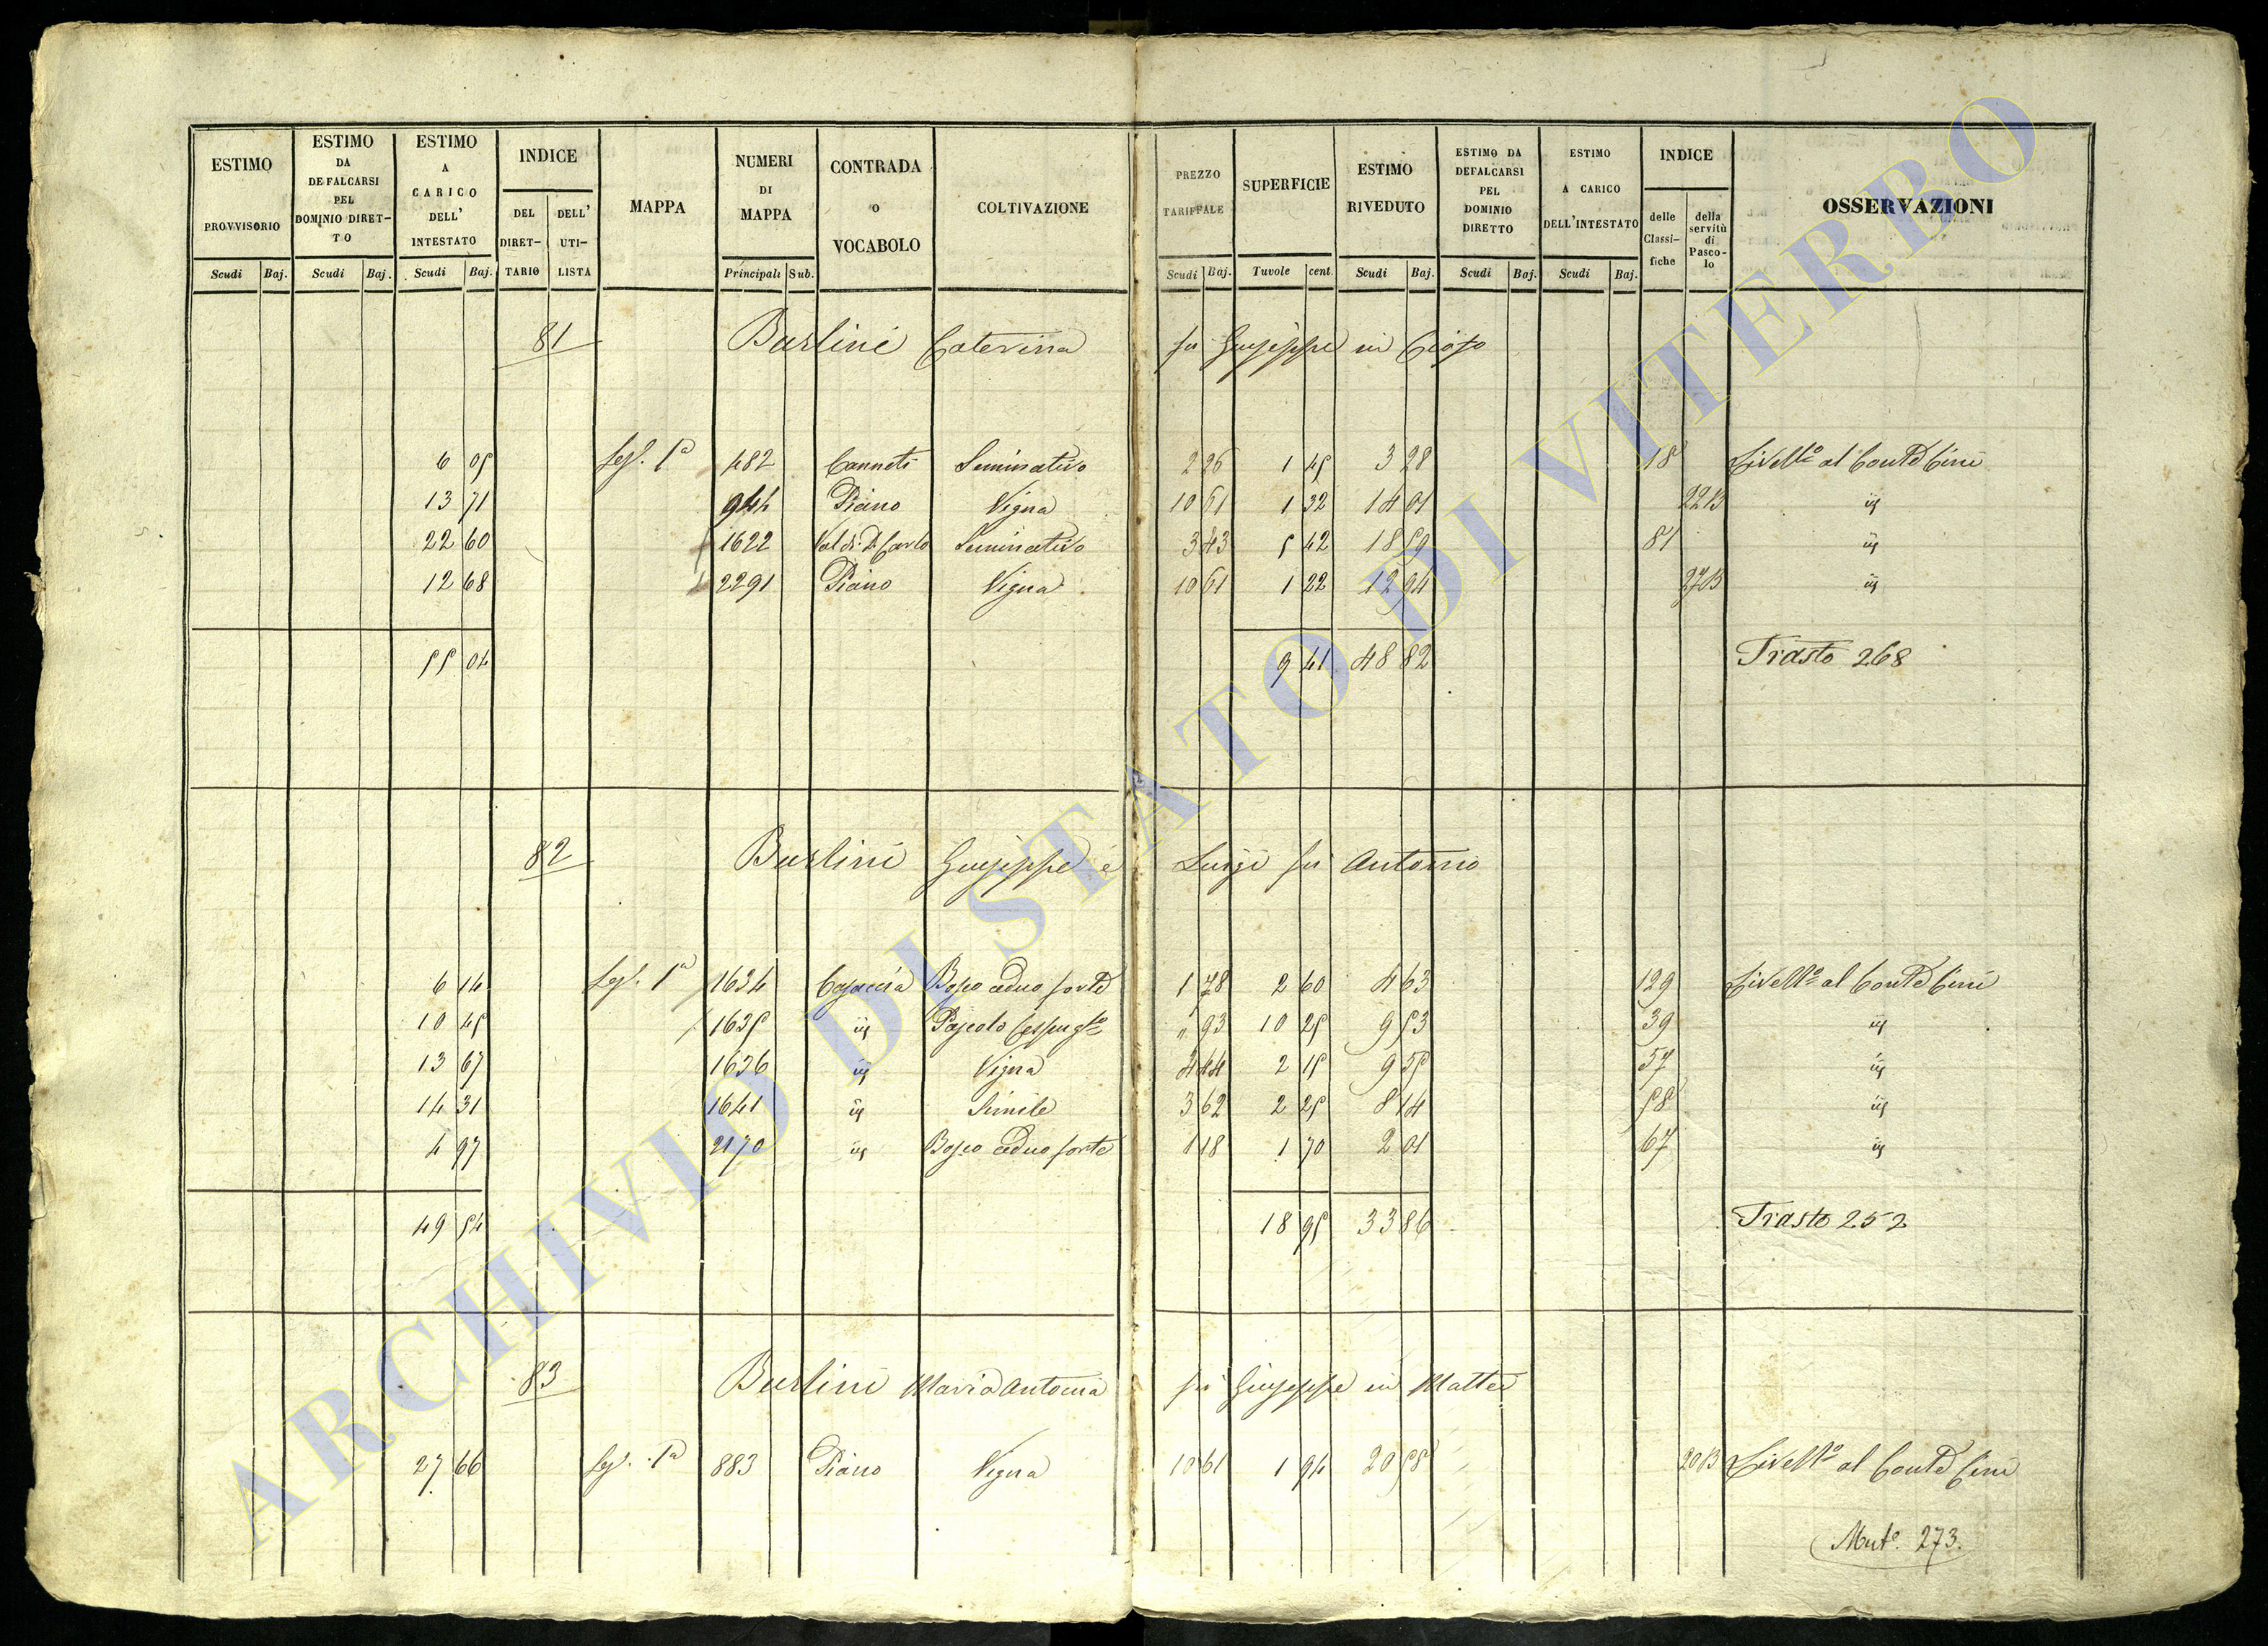 ESTIMO PROVVISORIO
ESTIMO DA DEFALCARSI PEL DOMINIO DIRETTO
ESTIMO A CARICO DELL' INTESTATO
INDICE
DEL DIRETTARIO
DELL' UTILISTA
MAPPA
NUMERI DI MAPPA
CONTRADA O VOCABOLO
COLTIVAZIONE
PREZZO TARIFFALE
SUPERFICIE
ESTIMO RIVEDUTO
ESTIMO DA DEFALCARSI PEL DOMINIO DIRETTO
ESTIMO A CARICO DELL'INTESTATO
INDICE
delle Classifiche
della servitù di Pascolo
OSSERVAZIONI
Scudi Baj. Scudi Baj. Scudi Baj. Principali Sub. Scudi Baj. Tavole cent. Scudi Baj. Scudi Baj. Scudi Baj.
81 Burlini Caterina fu Giuseppe in
6 05 1ª 482 Canneti Seminativo 2 26 1 45 3 28 18 Livellº al Conte Cini
13 71 944 Piano Vigna 10 61 1 32 14 01 22B
22 60 1622 Val di D. Carlo Seminativo 3 43 5 42 18 59 81
12 68 2291 Piano Vigna 10 61 1 22 12 94 27B
55 04 9 41 48 82 Trasto 268
82 Burlini Giuseppe e Luigi fu Antonio
6 14 1ª 1634 Bosco ceduo forte 1 78 2 60 4 63 129 Livellº al Conte Cini
10 45 1635 Pascolo " 93 10 25 9 53 39
13 67 1636 Vigna 4 44 2 15 9 55 57
14 31 1641 Simile 3 62 2 25 8 14 58
4 97 2170 Bosco ceduo forte 1 18 1 70 2 01 67
49 54 18 95 33 86 Trasto 252
83 Burlini Maria Antonia fu Giuseppe in Mattei
27 66 1ª 883 Piano Vigna 10 61 1 94 20 58 20B Livellº al Conte Cini
Mutº. 273.
ARCHIVIO DI STATO DI VITERBO